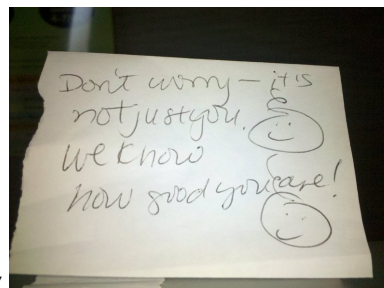 Don't worry — it is
not just you.
We know
how good you are!